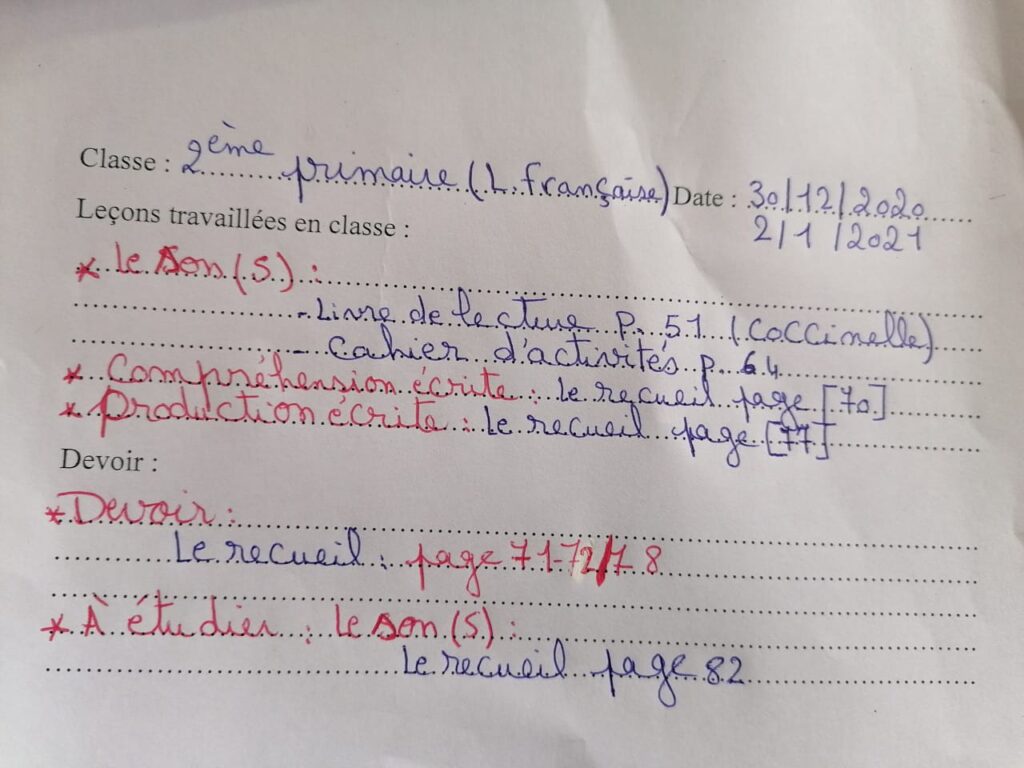 Classe : 2ème primaire (L. française) Date : 30/12/2020
2/1/2021
Leçons travaillées en classe :
* Le son (S) :
- Livre de lecture p. 51 (Coccinelle)
- Cahier d'activités p. 64
* Compréhension écrite : le recueil page [70]
* Production écrite : Le recueil page [77]
Devoir :
* Devoir :
Le recueil : page 71-72/78
* À étudier : le son (S) :
Le recueil page 82